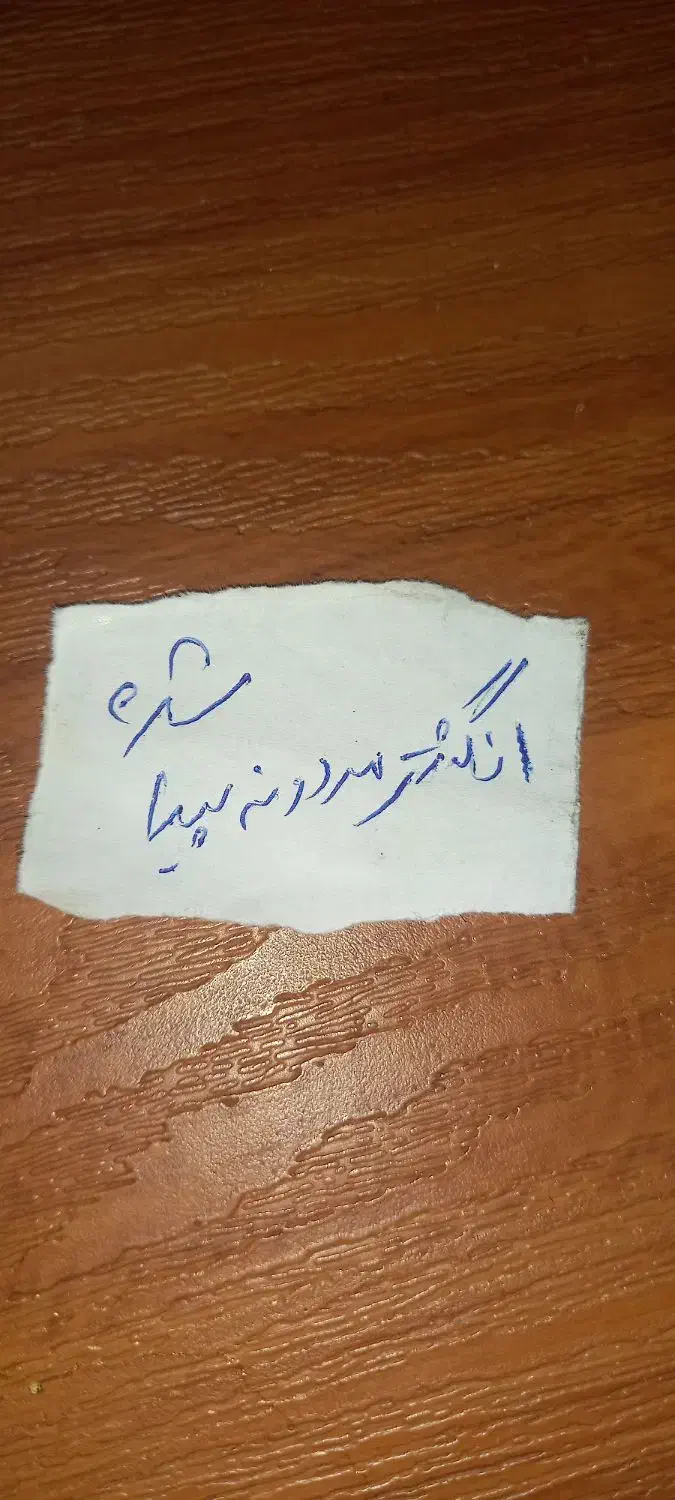 انگشتر مردونه پیدا
شده